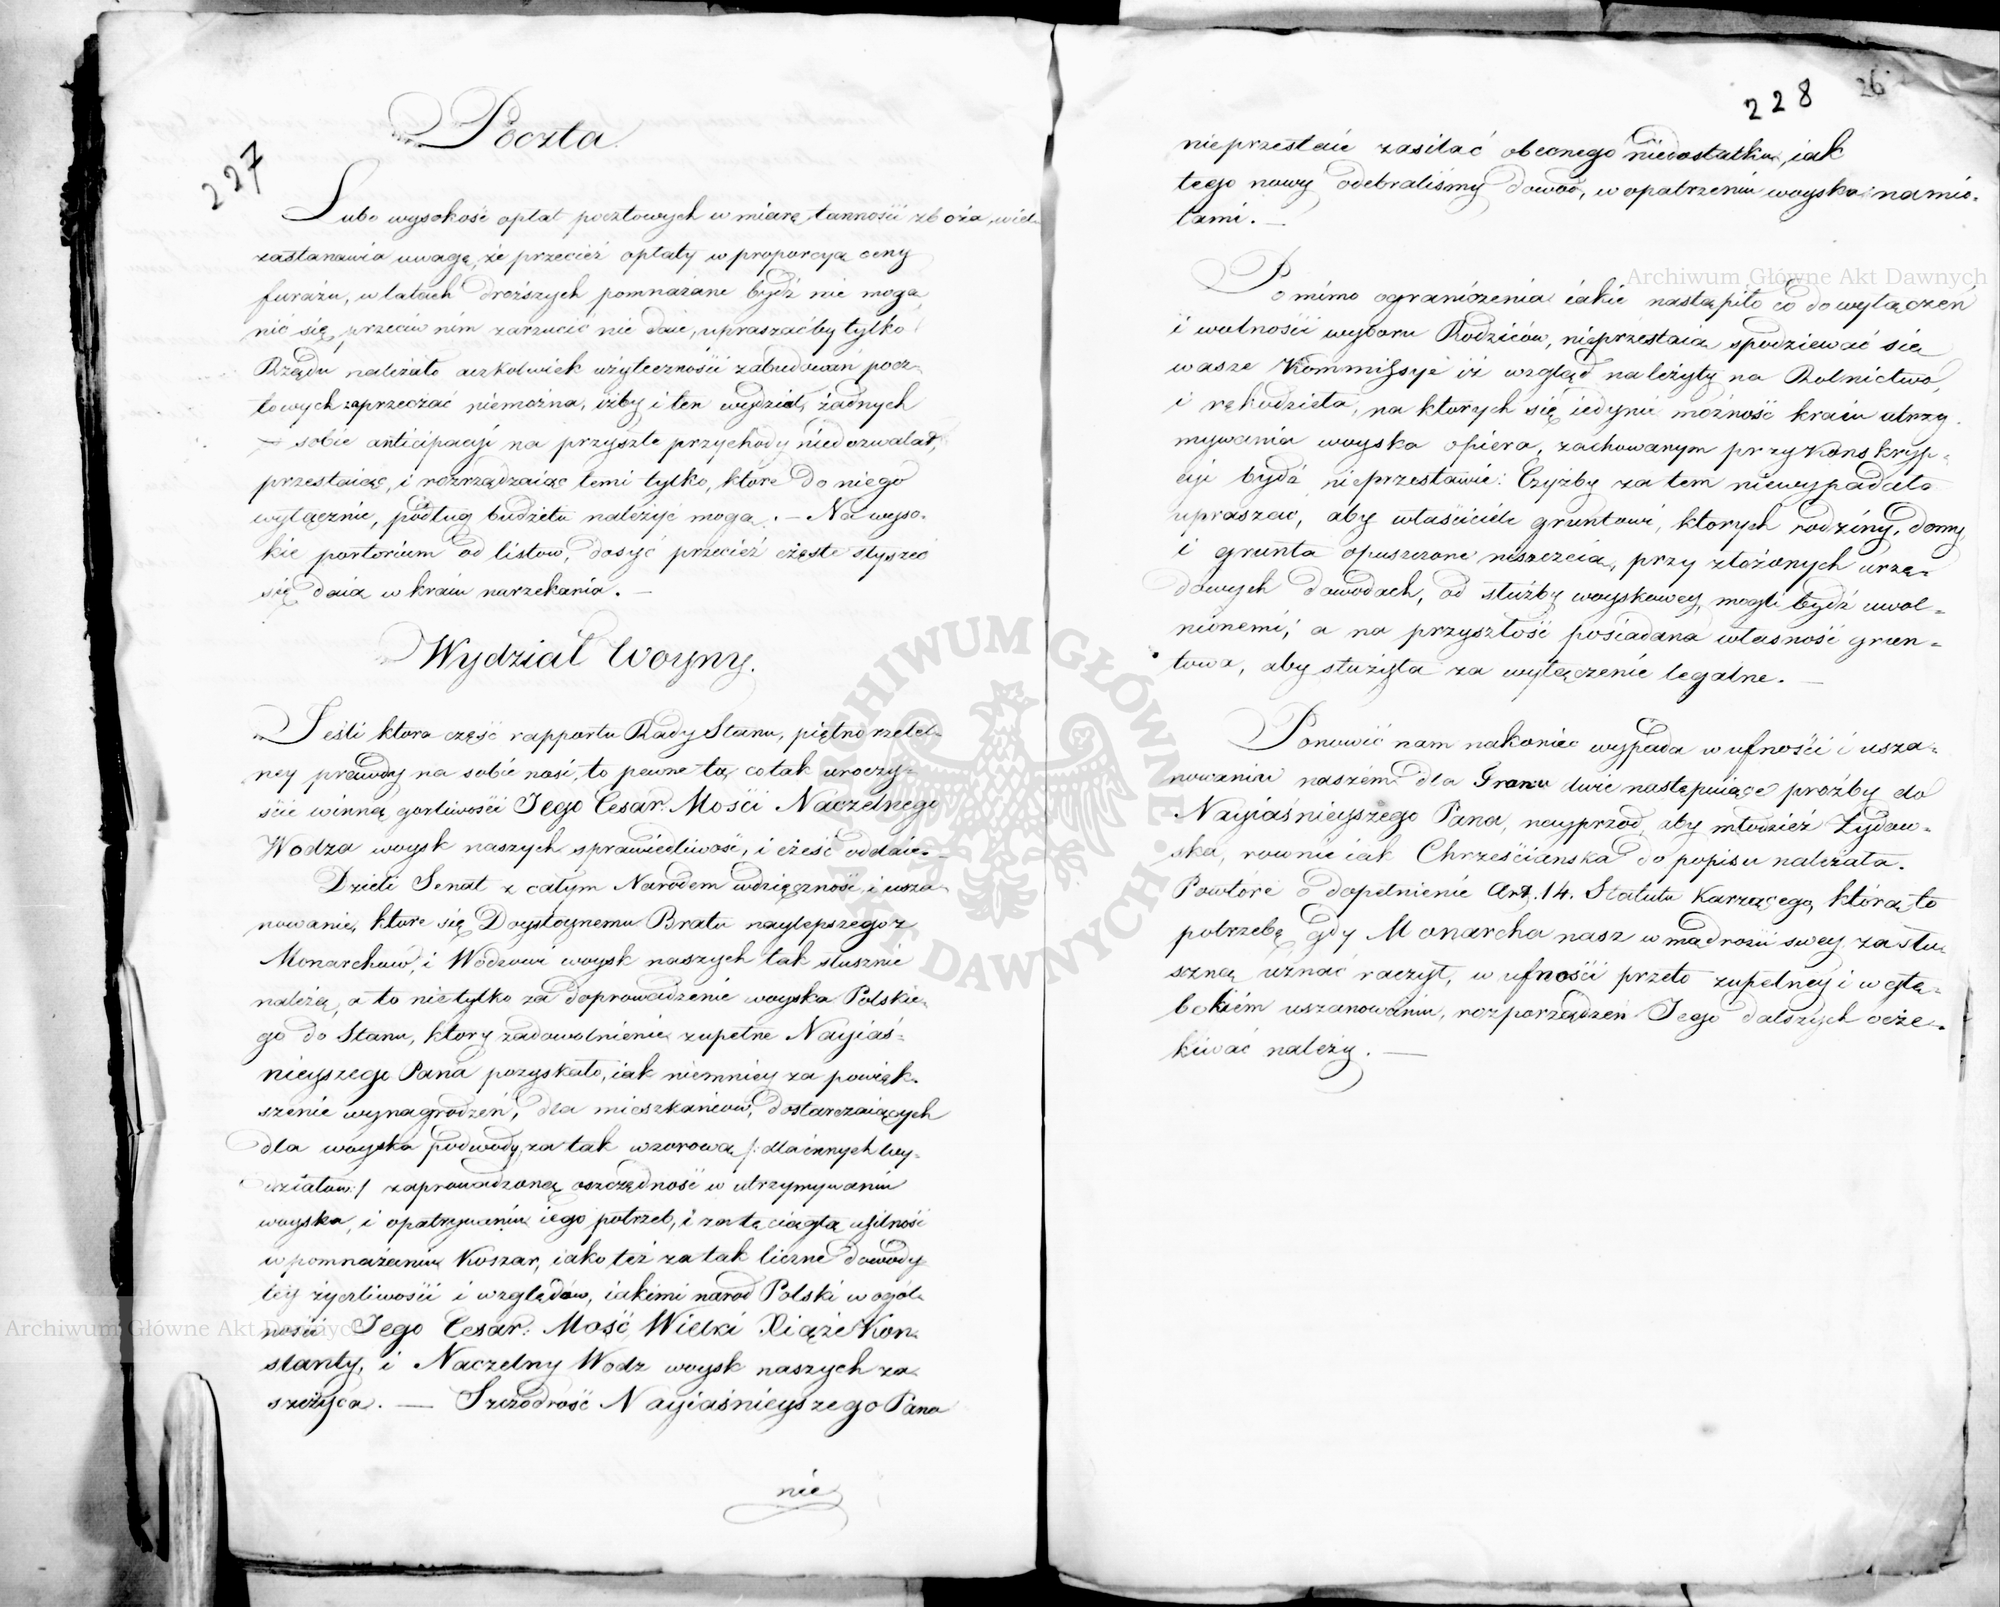 227
Poczta.
Lubo wysokość opłat pocztowych w miarę tanności zboża, wiel.
zastanawia uwagę, że przecież opłaty w proporcyą ceny
furażu, w latach droższych pomnażane bydź nie mogą,
nić się przeciw nim zarzucić nie daie, upraszaćby tylko
Rządu należało aczkolwiek użyteczności zabudowań pocz-
towych zaprzeczać niemożna, iżby i ten wydział, żadnych
sobie anticipacyi na przyszłe przychody niedozwalał,
przestaiąc, i rozrządzaiąc temi tylko, które do niego
wyłącznie, podług budżetu należyć mogą. — Na wyso-
kie portorium od listow, dosyć przecież częste słyszeć
się daią w kraiu narzekania. —
Wydział Woyny.
Jeśli ktora część rapportu Rady Stanu, piętno rzetel-
ney prawdy na sobie nosi, to pewne ta, co tak uroczy-
ście winną gorliwości Jego Cesar: Mości Naczelnego
Wodza woysk naszych sprawiedliwość, i cześć oddaie. —
Dzieli Senat z całym Narodem wdzięczność, i usza-
nowanie, które się Dostoynemu Bratu naylepszego z
Monarchów, i Wodzowi woysk naszych tak słusznie
należą, a to nietylko za doprowadzenie woyska Polskie-
go do Stanu, ktory zadowolnienie zupełne Nayiaś-
nieyszego Pana pozyskało, iak niemniey za powięk-
szenie wynagrodzeń, dla mieszkańcow, dostarczaiących
dla woyska podwody, za tak wzorową /: dla innych Wy-
działow :/ zaprowadzoną oszczędność w utrzymywaniu
woyska, i opatrywaniu iego potrzeb, i za tę ciągłą usilność
w pomnażaniu Koszar, iako też za tak liczne dowody
tey życzliwości i względów, iakimi narod Polski w ogól-
ności Jego Cesar: Mość Wielki Xiąże Kon-
stanty, i Naczelny Wodz woysk naszych za-
szczyca. — Szczodrość Nayiaśnieyszego Pana
nie
228 26
nieprzestaie zasilać obecnego niedostatku, iak
tego nowy odebraliśmy dowód, w opatrzeniu woyska namio-
tami. —
Pomimo ograniczenia iakie nastąpiło co do wyłączeń
i wolności wyboru Rodziców, nieprzestaią spodziewać się
wasze Kommissye iż wzgląd należyty na Rolnictwo,
i rękodzieła, na ktorych się iedynie możność kraiu utrzy-
mywania woyska opiera, zachowanym przy Konskryp-
cyi bydź nieprzestanie: Czyżby za tem niewypadało
upraszać, aby właściciele gruntowi, ktorych rodziny, domy
i grunta opuszczone niszczeią, przy złożonych urzę-
dowych dowodach, od służby woyskowey, mogli bydź uwol-
nionemi; a na przyszłość posiadana własność grun-
towa, aby służyła za wyłączenie legalne. —
Ponowić nam nakoniec wypada w ufności i usza-
nowaniu naszém dla Tronu dwie następuiące prośby do
Nayiaśnieyszego Pana, nayprzod, aby młodzież Żydow-
ska, rownie iak Chrześciańska do popisu należała.
Powtóre o dopełnienie Art. 14. Statutu Karzącego, którą to
potrzebę gdy Monarcha nasz w mądrości swey za słu-
szną uznać raczył, w ufności przeto zupełney i w głę-
bokiem uszanowaniu, rozporządzeń Jego dalszych ocze-
kiwać należy. —
Archiwum Główne Akt Dawnych
Archiwum Główne Akt Dawnych
ARCHIWUM GŁÓWNE AKT DAWNYCH